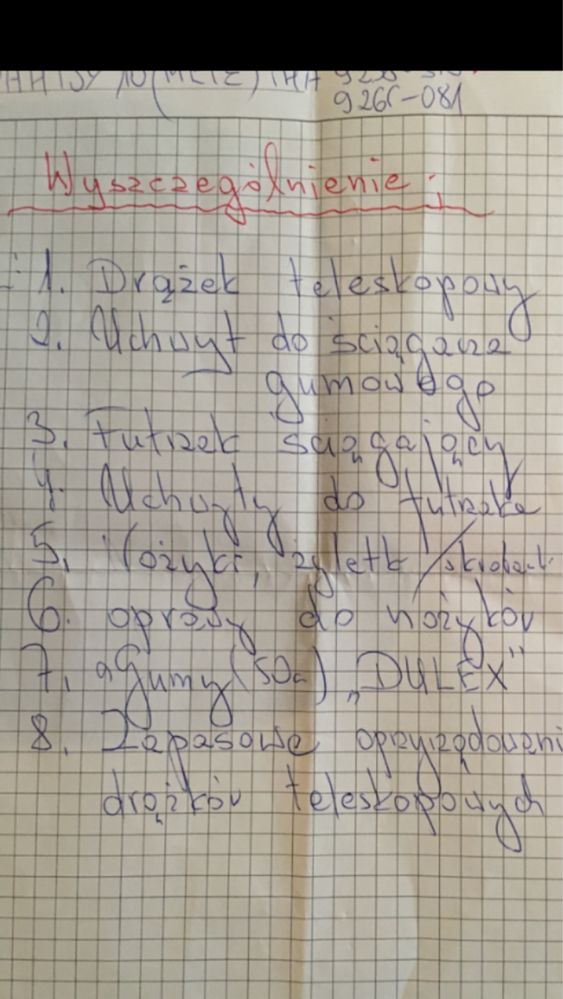 926r-081
Wyszczególnienie:
1. Drążek teleskopowy
2. Uchwyt do ściągacza
gumowego
3. Futrzek ściągający
4. Uchwyty do futrzaka
5. Nożyki, żyletk/skrobak
6. oprawy do nożyków
7. Gumy (50c) „DULEX"
8. Zapasowe oprzyrządowani
drążków teleskopowych